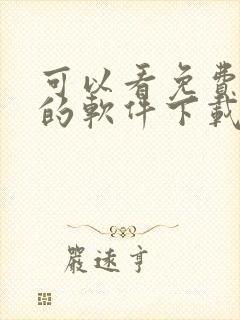 可以看免費
的軟件下載
嚴逺亨